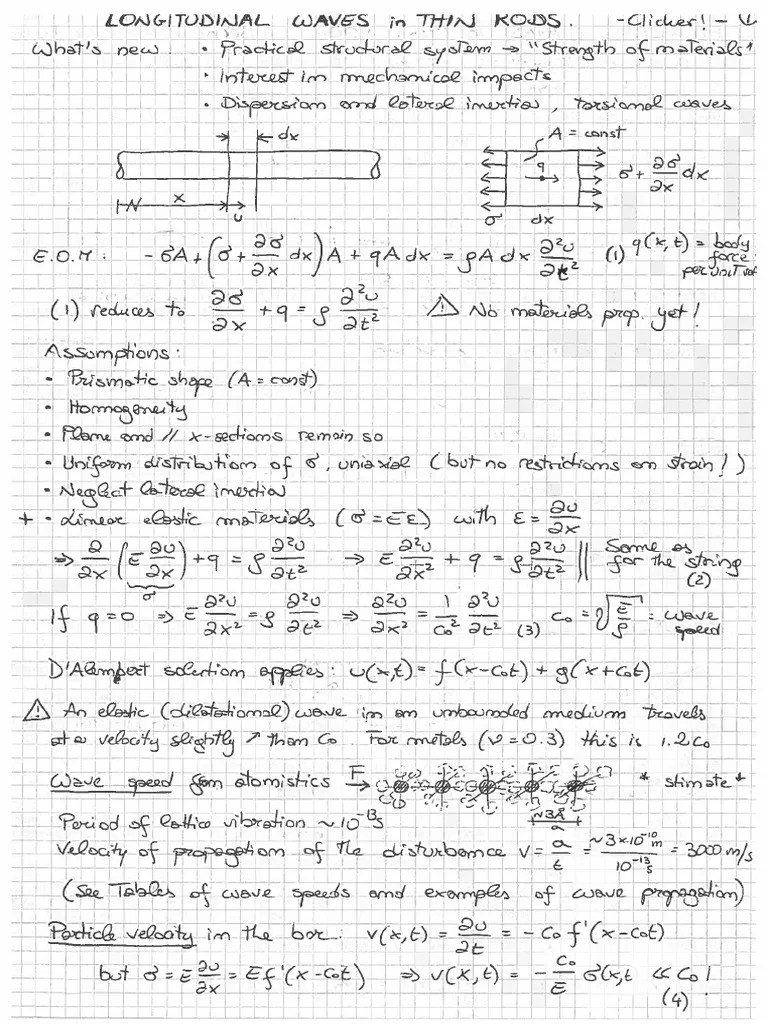 LONGITUDINAL WAVES in THIN RODS. -Clicker! -
What's new: • Practical structural system → "Strength of materials"
• Interest in mechanical impacts
• Dispersion and lateral inertia, torsional waves
dx
A = const
q
σ + ∂σ/∂x dx
x
u
σ dx
E.O.M: -σA + (σ + ∂σ/∂x dx)A + qA dx = ρA dx ∂²u/∂t² (1) q(x,t) = body force per unit vol
(1) reduces to ∂σ/∂x + q = ρ ∂²u/∂t² ⚠ No materials prop. yet!
Assumptions:
• Prismatic shape (A = const)
• Homogeneity
• Plane and // x-sections remain so
• Uniform distribution of σ, uniaxial (but no restrictions on strain!)
• Neglect lateral inertia
+ • Linear elastic materials (σ = Eε) with ε = ∂u/∂x
⇒ ∂/∂x (E ∂u/∂x) + q = ρ ∂²u/∂t² → E ∂²u/∂x² + q = ρ ∂²u/∂t² || Same as for the string (2)
σ
If q = 0 ⇒ E ∂²u/∂x² = ρ ∂²u/∂t² ⇒ ∂²u/∂x² = 1/c₀² ∂²u/∂t² (3) c₀ = √E/ρ : wave speed
D'Alembert solution applies: u(x,t) = f(x-c₀t) + g(x+c₀t)
⚠ An elastic (dilatational) wave in an unbounded medium travels
at a velocity slightly ↗ than c₀. For metals (ν = 0.3) this is 1.2c₀
Wave speed from atomistics F * stimate *
Period of lattice vibration ~10⁻¹³s ~3Å
a
Velocity of propagation of the disturbance v = a/t = ~3×10⁻¹⁰ m/10⁻¹³ s = 3000 m/s
(See Tables of wave speeds and examples of wave propagation)
Particle velocity in the bar: v(x,t) = ∂u/∂t = -c₀ f'(x-c₀t)
but σ = E ∂u/∂x = Ef'(x-c₀t) ⇒ v(x,t) = -c₀/E σ(x,t ≪ c₀!
(4)